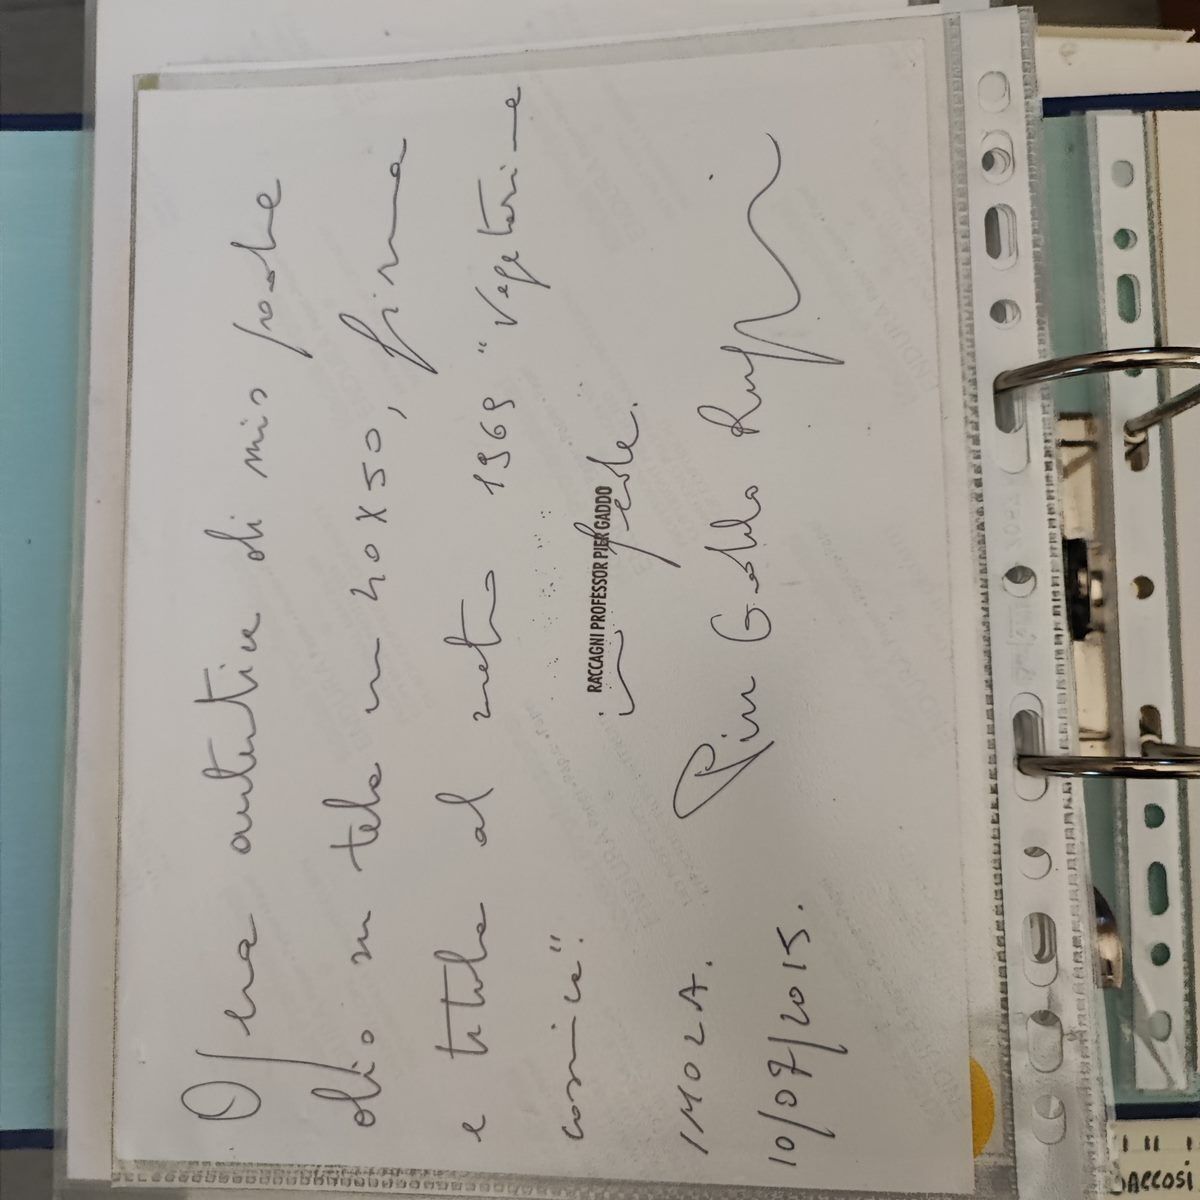 Opera autentica di mio padre
olio su tela cm 40x50, firma
e titolo al retro 1969 "Vegetazione
cosmica".
RACCAGNI PROFESSOR PIER GADDO
In fede.
IMOLA.
Pier Gaddo
10/07/2015.
ACCOSI